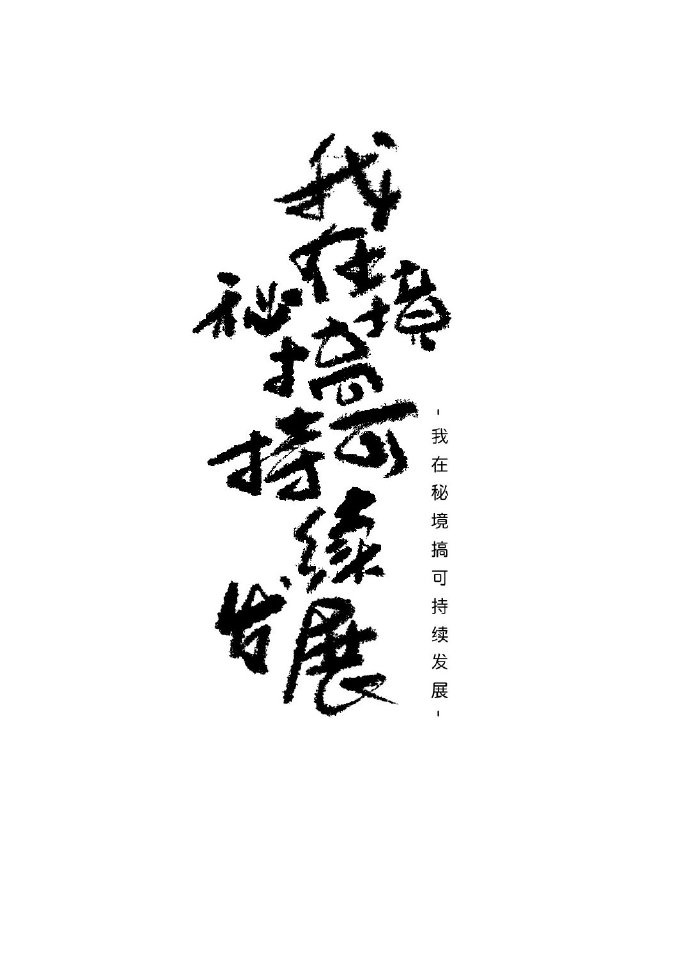 我
在
秘境
搞
可
持
续
发展
-我在秘境搞可持续发展-